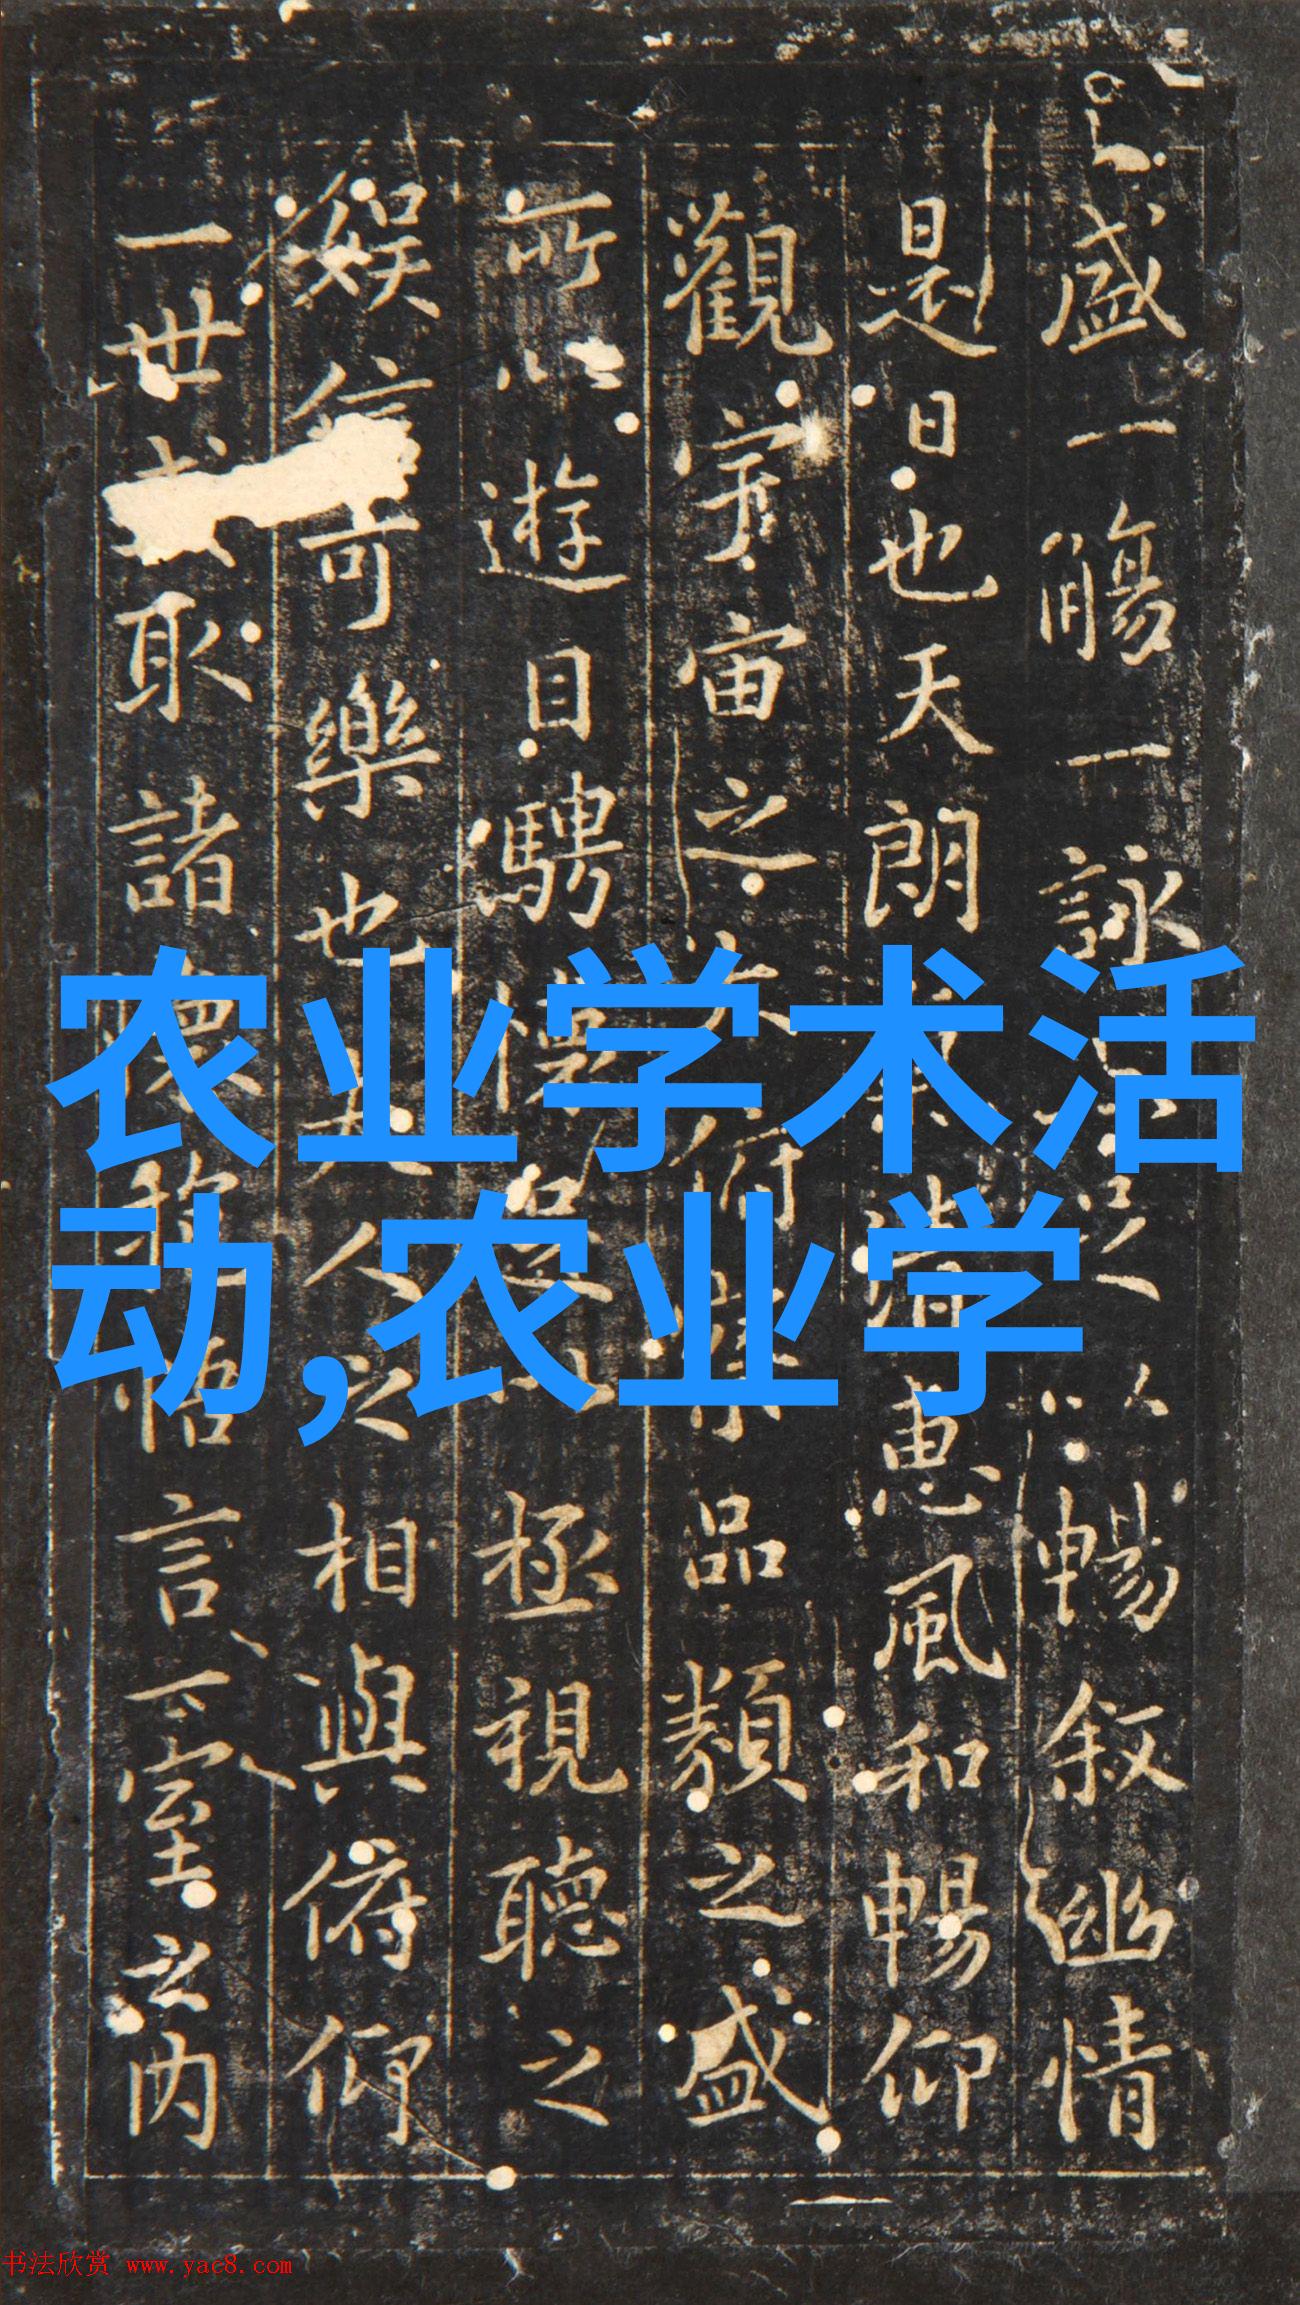 盛一觴一詠足以暢叙幽情
是日也天朗氣清惠風和暢仰
觀宇宙之大俯察品類之盛
所以遊目騁懷足以極視聽之
娱信可樂也夫人之相與俯仰
一世取諸懷抱悟言一室之内
农业学术活
动,农业学
书法欣赏 www.yac8.com